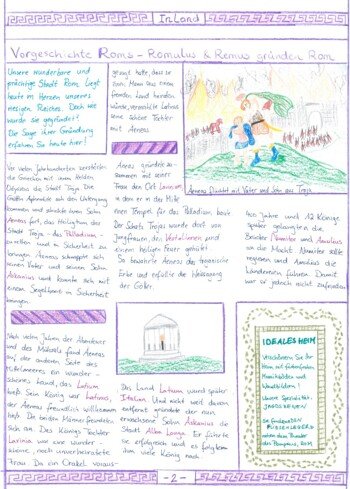 InLand
Vorgeschichte Roms - Romulus & Remus gründen Rom
Unsere wunderbare und
prächtige Stadt Rom liegt
heute im Herzen unseres
riesigen Reiches. Doch wie
wurde sie gegründet?
Die Sage ihrer Gründung
erfahren Sie heute hier!
Vor vielen Jahrhunderten zerstörten
die Griechen mit ihrem Helden
Odysseus die Stadt Troja. Die
Göttin Aphrodite sah den Untergang
kommen und schickte ihren Sohn
Aeneas fort, das Heiligtum der
Stadt Troja - das Palladium -
zu retten und in Sicherheit zu
bringen. Aeneas schnappte sich
seinen Vater und seinen Sohn
Askanius und konnte sich mit
einem Segelboot in Sicherheit
bringen.
Nach vielen Jahren der Abenteuer
und des Mühsals fand Aeneas
auf der anderen Seite des
Mittelmeeres ein wunder-
schönes Land, das Latium
hieß. Sein König war Latinus,
der Aeneas freundlich willkommen
hieß. Die beiden Männer freundeten
sich an. Des Königs Tochter
Lavinia war eine wunder-
schöne, noch unverheiratete
Frau. Da ein Orakel voraus-
gesagt hatte, dass sie
einen Mann aus einem
fremden Land heiraten
würde, vermählte Latinus
seine schöne Tochter
mit Aeneas.
Aeneas gründete zu-
sammen mit seiner
Frau den Ort Lavinium,
in dem er in der Mitte
einen Tempel für das Palladium, baute.
Der Schatz Trojas wurde dort von
Jungfrauen, den Vestalinnen und
einem heiligen Feuer gehütet.
So bewahrte Aeneas das trojanische
Erbe und erfüllte die Weissagung
der Götter.
Das Land Latium wurde später
Italien. Und nicht weit davon
entfernt gründete der nun
erwachsene Sohn Askanius die
Stadt Alba Longa. Es führte
sie erfolgreich und es folgten
ihm viele Könige nach.
Aeneas Flucht mit Vater und Sohn aus Troja
400 Jahre und 12 Könige
später gelangten die
Brüder Numitor und Amulius
an die Macht. Numitor sollte
regieren und Amulius die
Ländereien führen. Damit
war er jedoch nicht zufrieden
IDEALES HEIM
Verschönern Sie Ihr
Heim mit
Mosaikböden und
Wandbildern!
Unsere Spezialität:
JAGDSZENEN!
FLIESENLEGER
neben dem Theater
des Pompeius, ROM
- 2 -